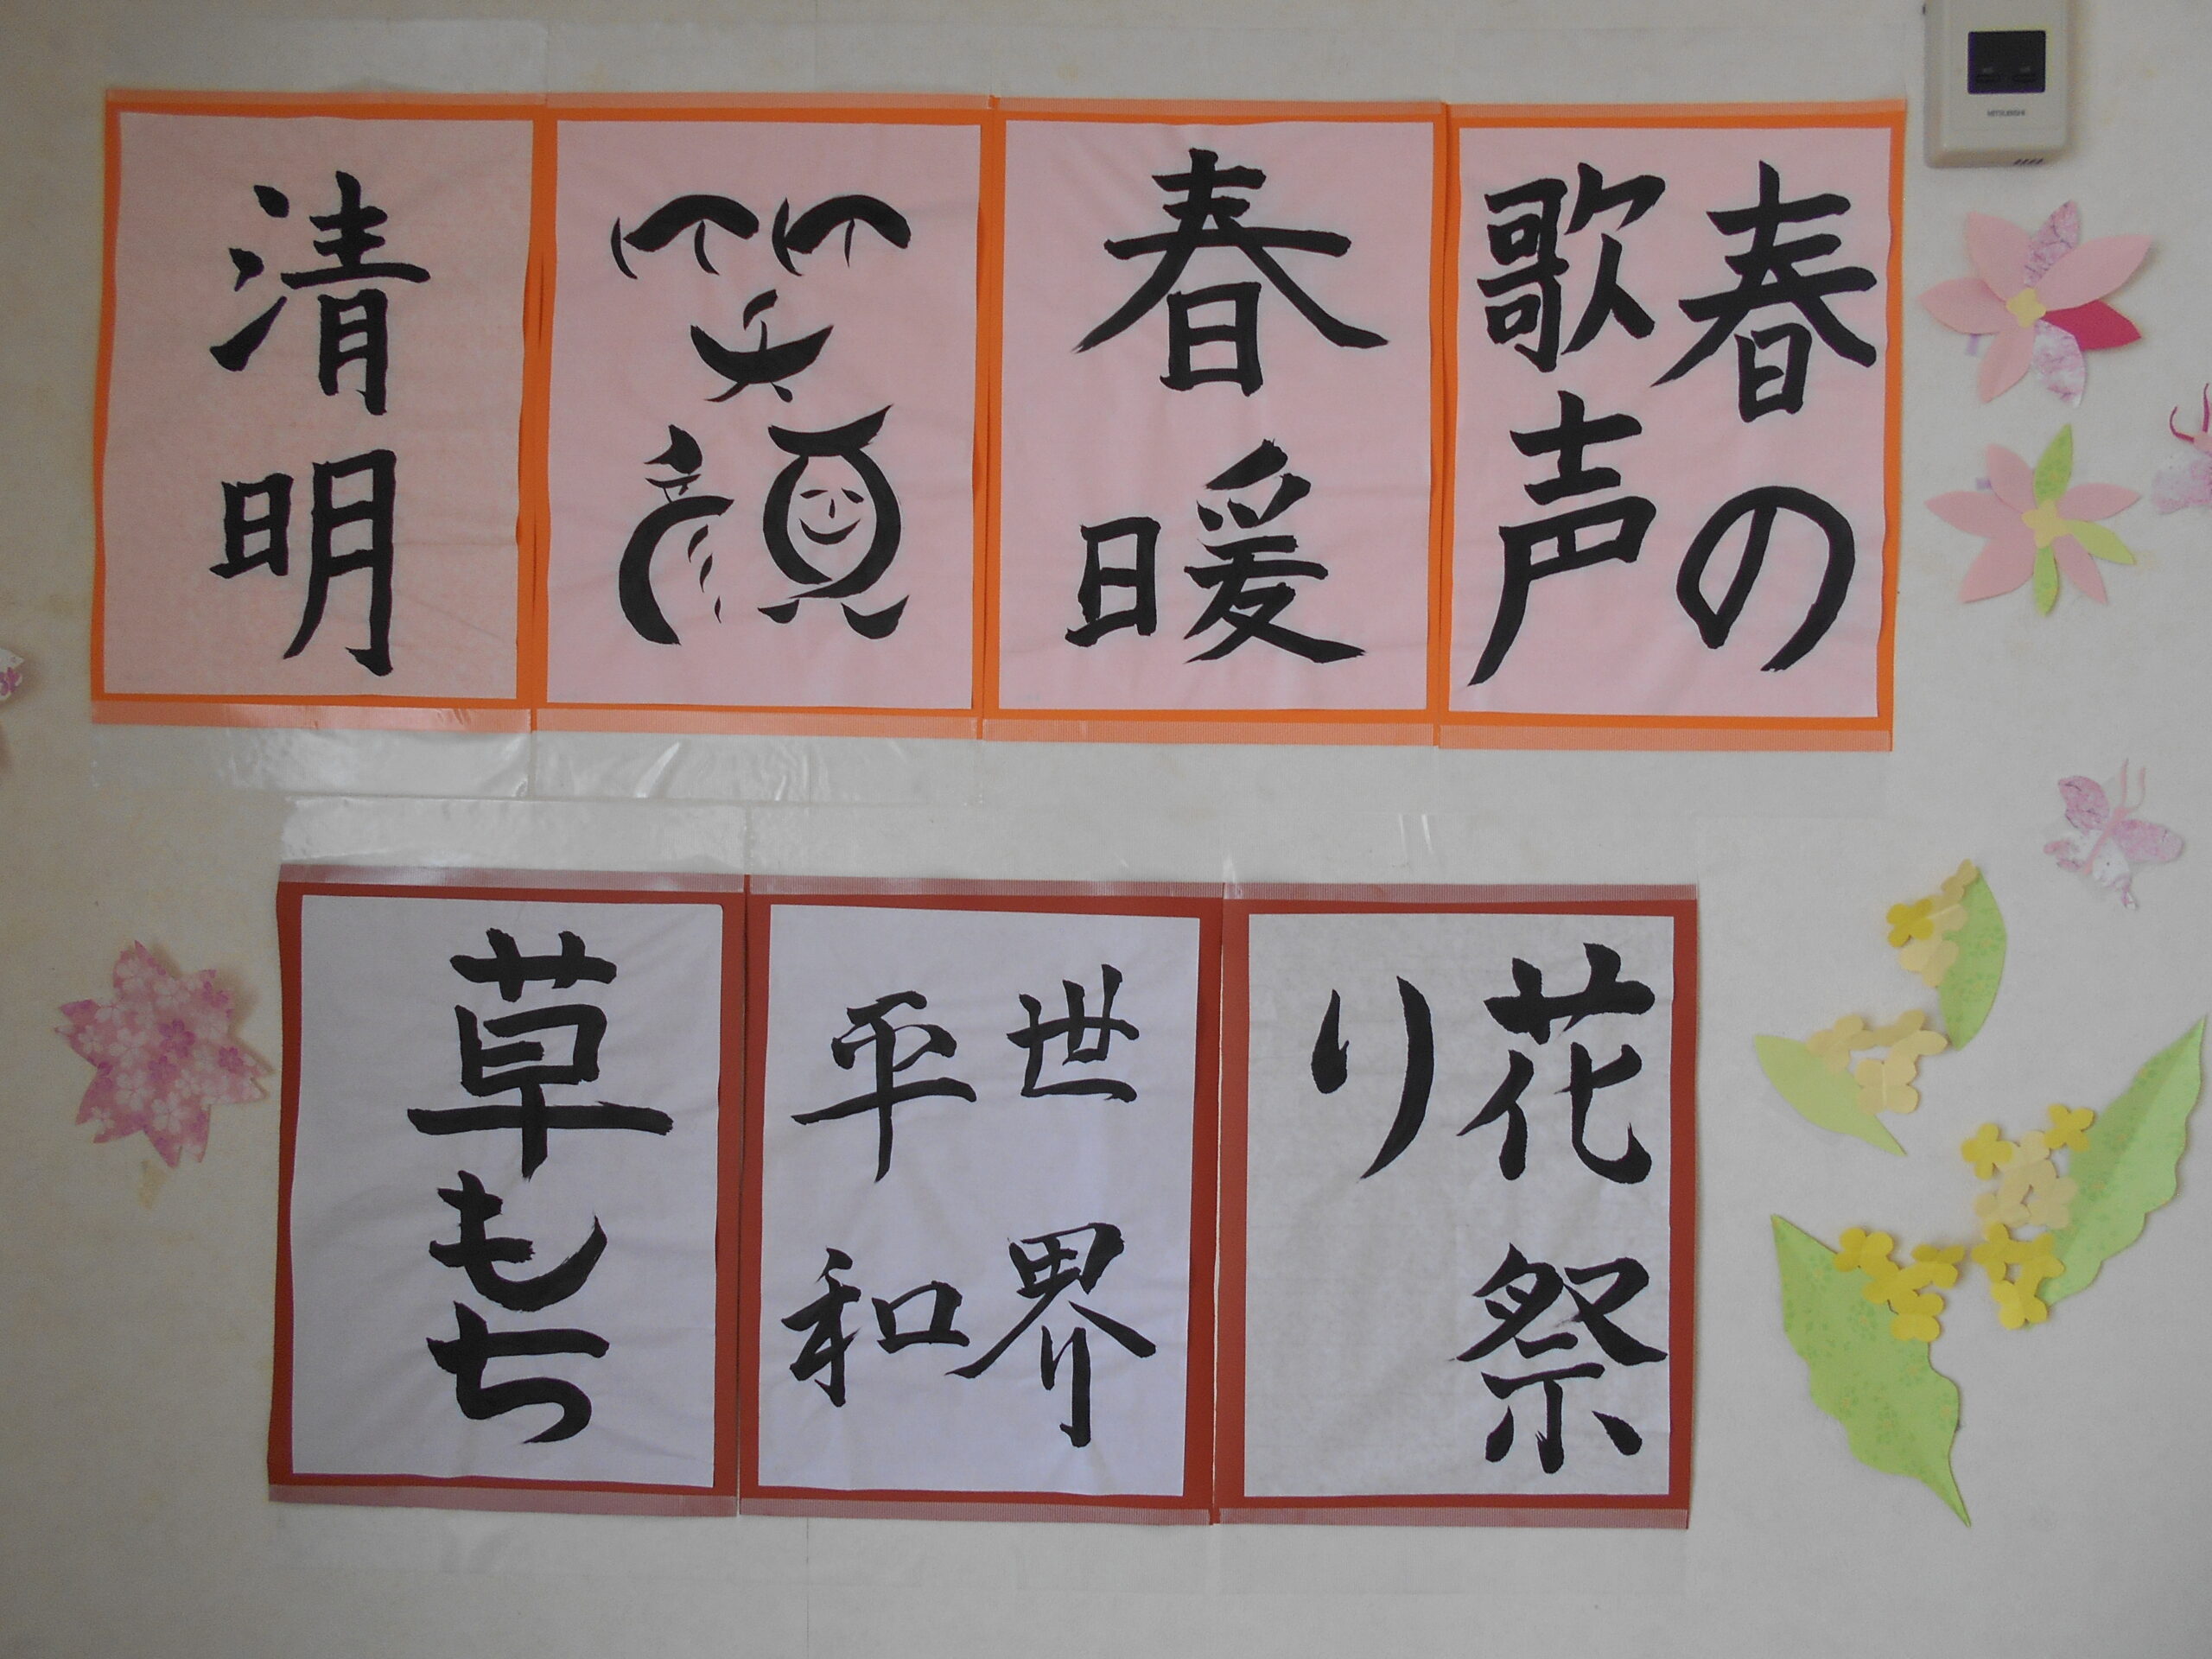 春の
歌声
春暖
笑顔
清明
花祭
り
世界
平和
草もち
MITSUBISHI